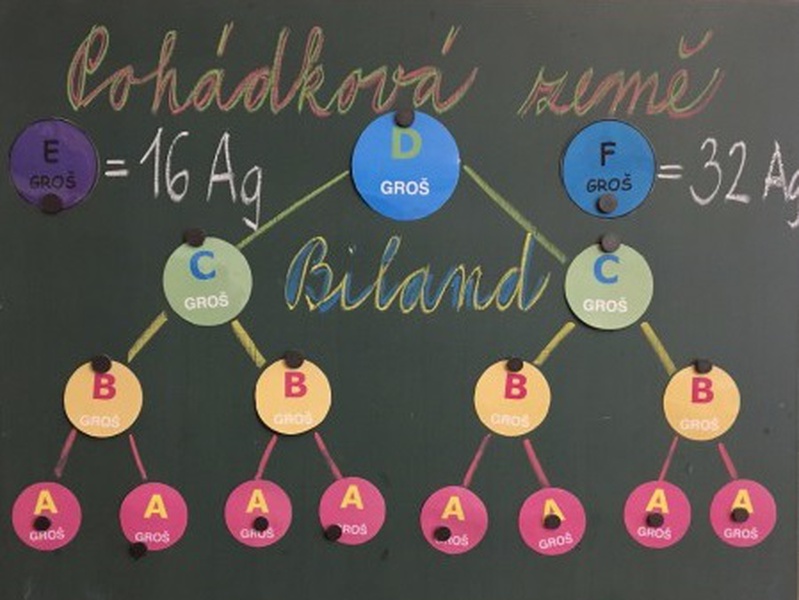 Pohádková země
E GROŠ = 16 Ag
D GROŠ
F GROŠ = 32 Ag
C GROŠ
Biland
C GROŠ
B GROŠ
B GROŠ
B GROŠ
B GROŠ
A GROŠ
A GROŠ
A GROŠ
A GROŠ
A GROŠ
A GROŠ
A GROŠ
A GROŠ